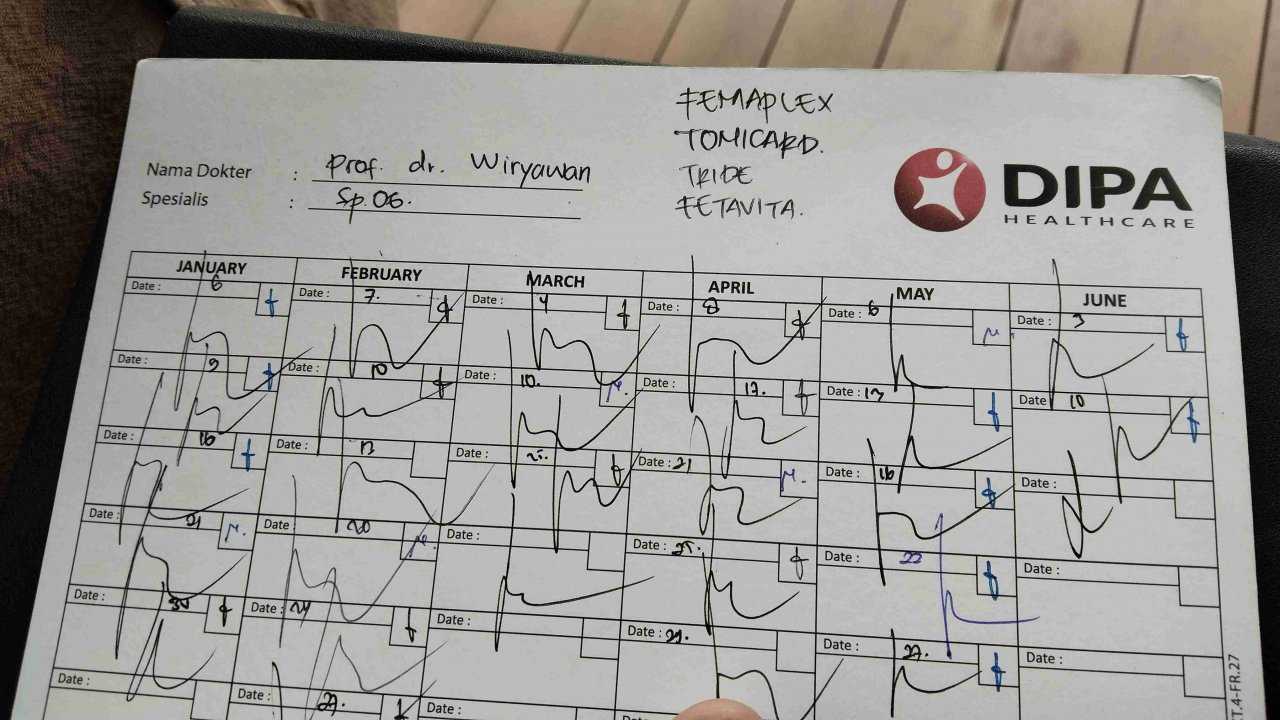 FEMAPLEX
TOMICARD.
TRIDE
FETAVITA.
Nama Dokter : Prof. dr. Wiryawan
Spesialis : Sp.OG.
DIPA
HEALTHCARE
JANUARY FEBRUARY MARCH APRIL MAY JUNE
Date : 6 Date : 7. Date : 4 Date : 8 Date : 6 Date : 3
Date : 9 Date : 10 Date : 10. Date : 17. Date : 13 Date : 10
Date : 16 Date : 13 Date : 25. Date : 21 Date : 16 Date :
Date : 21 Date : 20 Date : Date : 25. Date : 22 Date :
Date : 30 Date : 24 Date : Date : 29. Date : 27. Date :
Date : Date : 27. Date : Date : Date :
T.4-FR.27